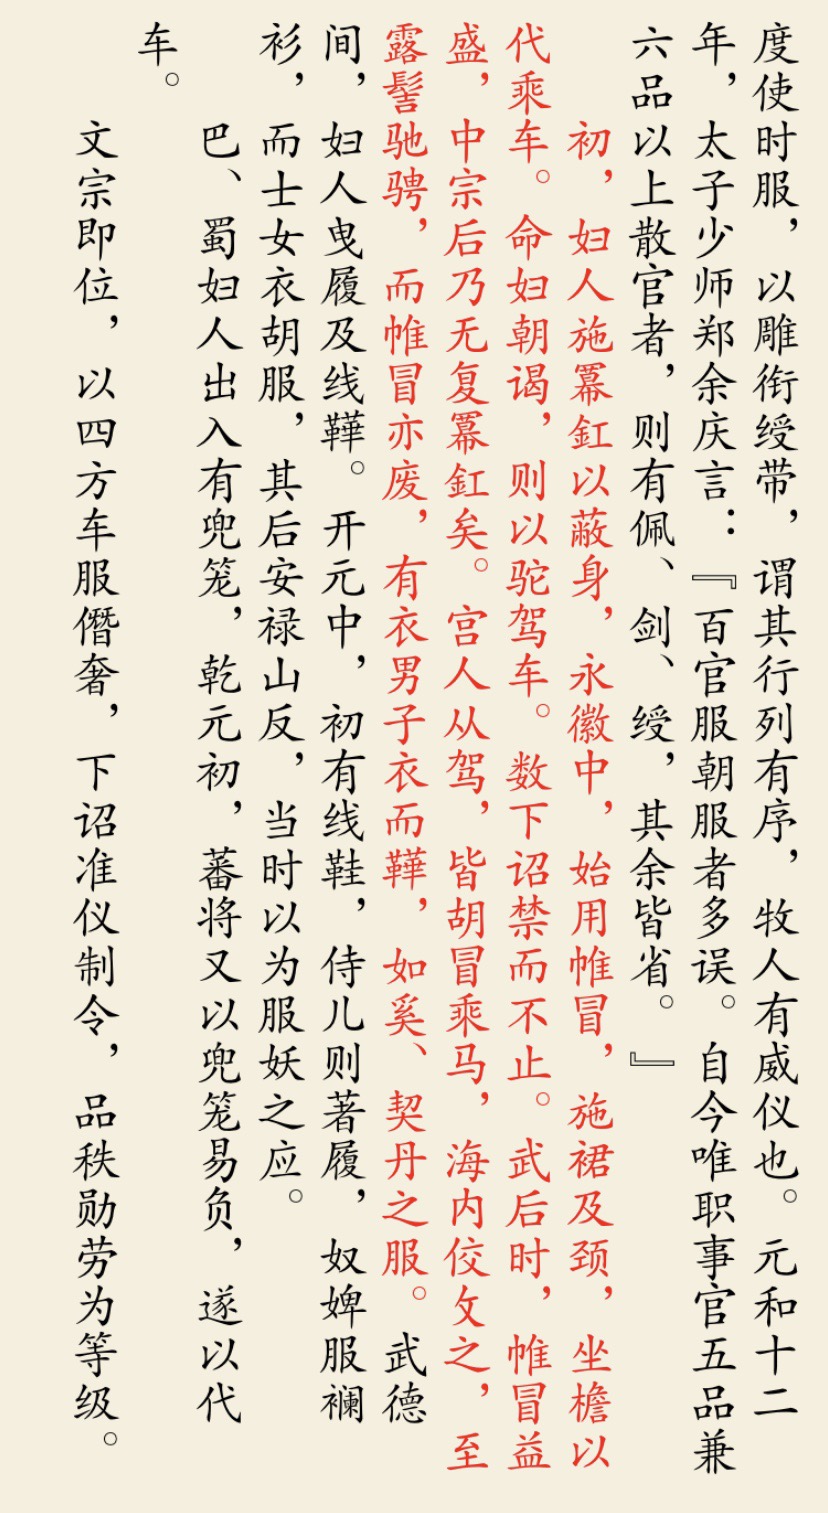 度使时服，以雕衔绶带，谓其行列有序，牧人有威仪也。元和十二
年，太子少师郑余庆言：『百官服朝服者多误。自今唯职事官五品兼
六品以上散官者，则有佩、剑、绶，其余皆省。』
初，妇人施羃釭以蔽身，永徽中，始用帷冒，施裙及颈，坐檐以
代乘车。命妇朝谒，则以驼驾车。数下诏禁而不止。武后时，帷冒益
盛，中宗后乃无复羃釭矣。宫人从驾，皆胡冒乘马，海内佼攵之，至
露髻驰骋，而帷冒亦废，有衣男子衣而鞾，如奚、契丹之服。武德
间，妇人曳履及线鞾。开元中，初有线鞋，侍儿则著履，奴婢服襕
衫，而士女衣胡服，其后安禄山反，当时以为服妖之应。
巴、蜀妇人出入有兜笼，乾元初，蕃将又以兜笼易负，遂以代
车。
文宗即位，以四方车服僭奢，下诏准仪制令，品秩勋劳为等级。